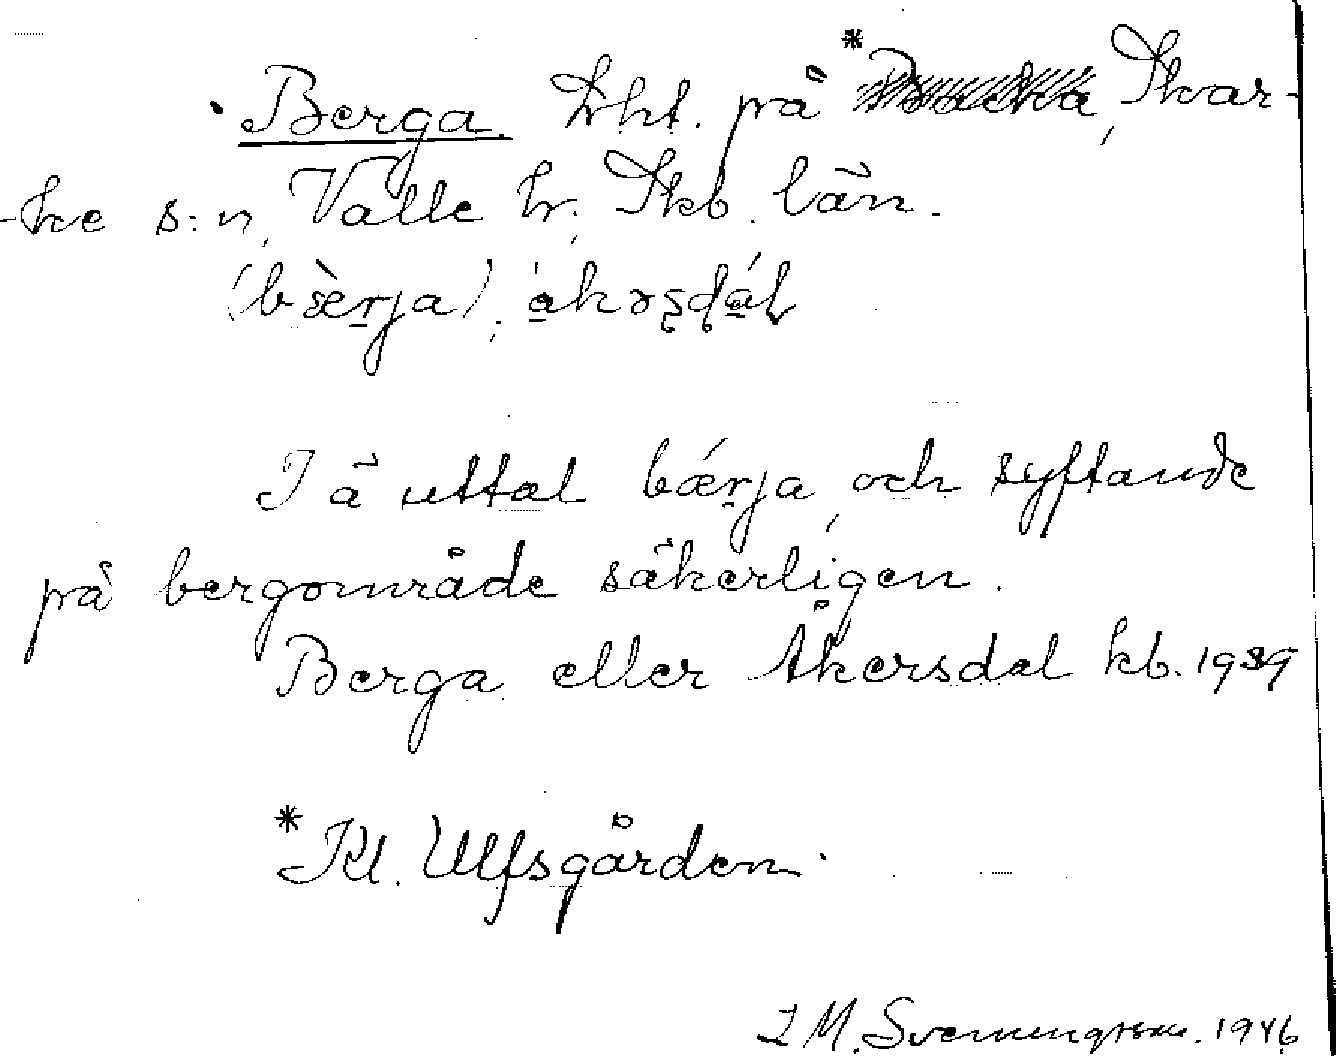 Berga. Lht. på * Skar-
-ke s:n, Valle hr, Skb. län.
(bæ̀rja), åkəʂɖál
I ä uttal bǽrja, och syftande
på bergområde säkerligen.
Berga eller Åkersdal kb. 1939
* Kl. Ulfsgården.
I M. Svenungsson. 1946